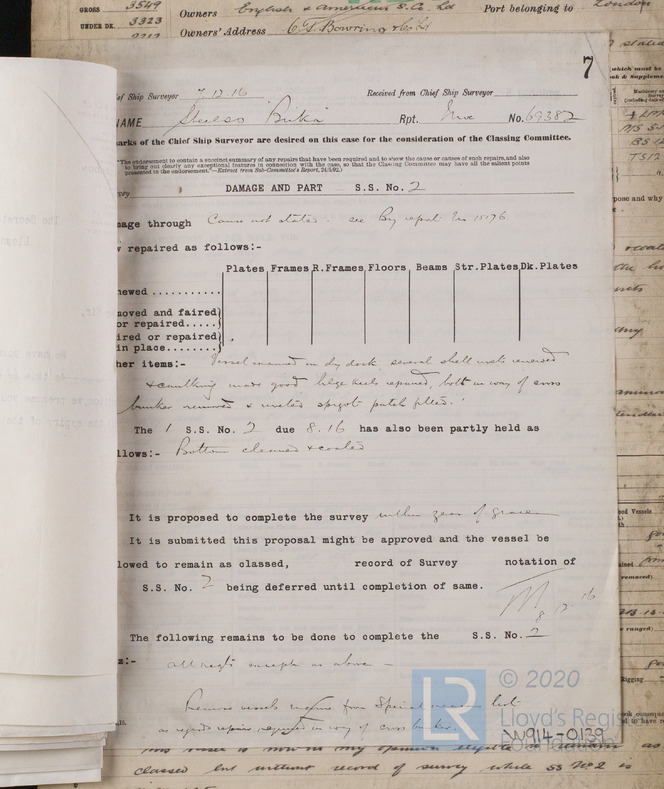 GROSS 3549 Owners English & American S. Co. Ld Port belonging to London
UNDER DK. 3323
Owners' Address C. T. Bowring & Co. Ld
7
ef Ship Surveyor 7.12.16 Received from Chief Ship Surveyor
NAME Rpt. No. 69382
arks of the Chief Ship Surveyor are desired on this case for the consideration of the Classing Committee.
"The endorsement to contain a succinct summary of any repairs that have been required and to show the cause or causes of such repairs, and also
to bring out clearly any exceptional features in connection with the case, so that the Classing Committee may have all the salient points
presented in the endorsement."—Extract from Sub-Committee's Report, 24/5/92.)
vey DAMAGE AND PART S.S. No. 2
mage through Cause not stated. see report No 15176
w repaired as follows:-
Plates Frames R.Frames Floors Beams Str.Plates Dk.Plates
newed...........
moved and faired)
or repaired.....)
ired or repaired)
in place........)
her items:- Vessel examined in dry dock, several shell rivets renewed
& caulking made good bilge keels repaired, bolt in way of cross
bunker removed & riveted spigot patch fitted.
The 1 S.S. No. 2 due 8.16 has also been partly held as
llows:- Bottom cleaned & coated
It is proposed to complete the survey within year of grace
It is submitted this proposal might be approved and the vessel be
lowed to remain as classed, record of Survey notation of
S.S. No. 2 being deferred until completion of same.
8 12 16
The following remains to be done to complete the S.S. No. 2
:- all reqts except as above -
Remove vessels name from Special list
as regards repairs required in way of cross bunker.
© 2020
LR
Lloyd's Regis
W914-0139
classed but without record of survey while SS No 2 is